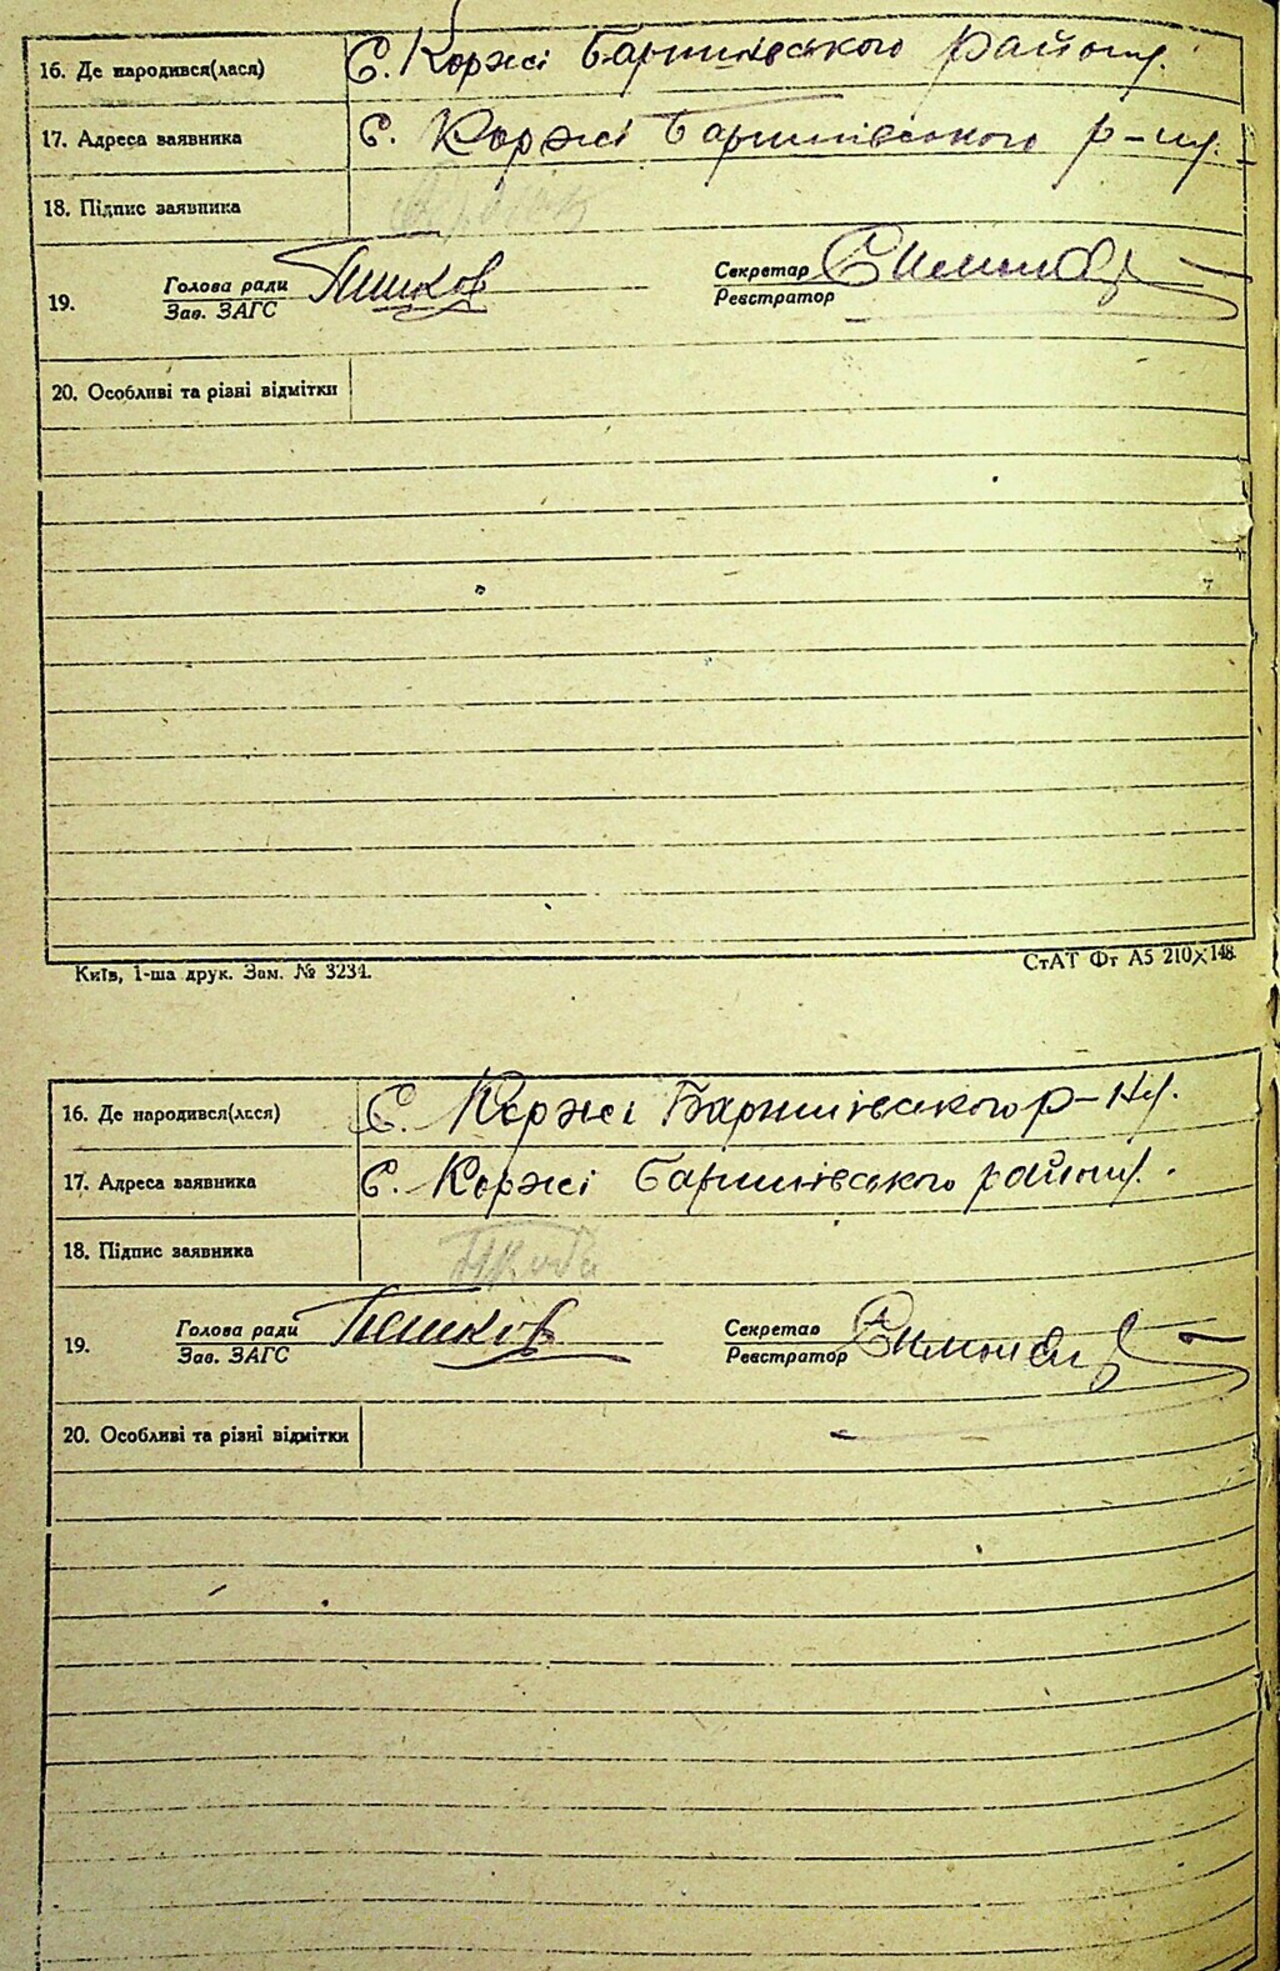 16. Де народився(лася) С. Коржі Баришівського району.
17. Адреса заявника С. Коржі Баришівського р-ну.
18. Підпис заявника
19. Голова ради Пешков Секретар
Зав. ЗАГС Реєстратор
20. Особливі та різні відмітки
Київ, 1-ша друк. Зам. № 3234. СтАТ Фт А5 210X148.
16. Де народився(лася) С. Коржі Баришівського р-ну.
17. Адреса заявника С. Коржі Баришівського району.
18. Підпис заявника
19. Голова ради Пешков Секретар
Зав. ЗАГС Реєстратор
20. Особливі та різні відмітки